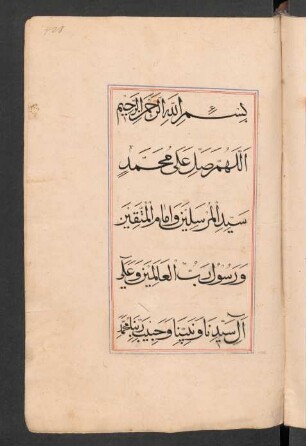 بسم الله الرحمن الرحیم
اللهم صل علی محمد
سید المرسلین وامام المتقین
ورسول رب العالمین وعلی
آل سیدنا ونبینا وحبیب ربنا محمد